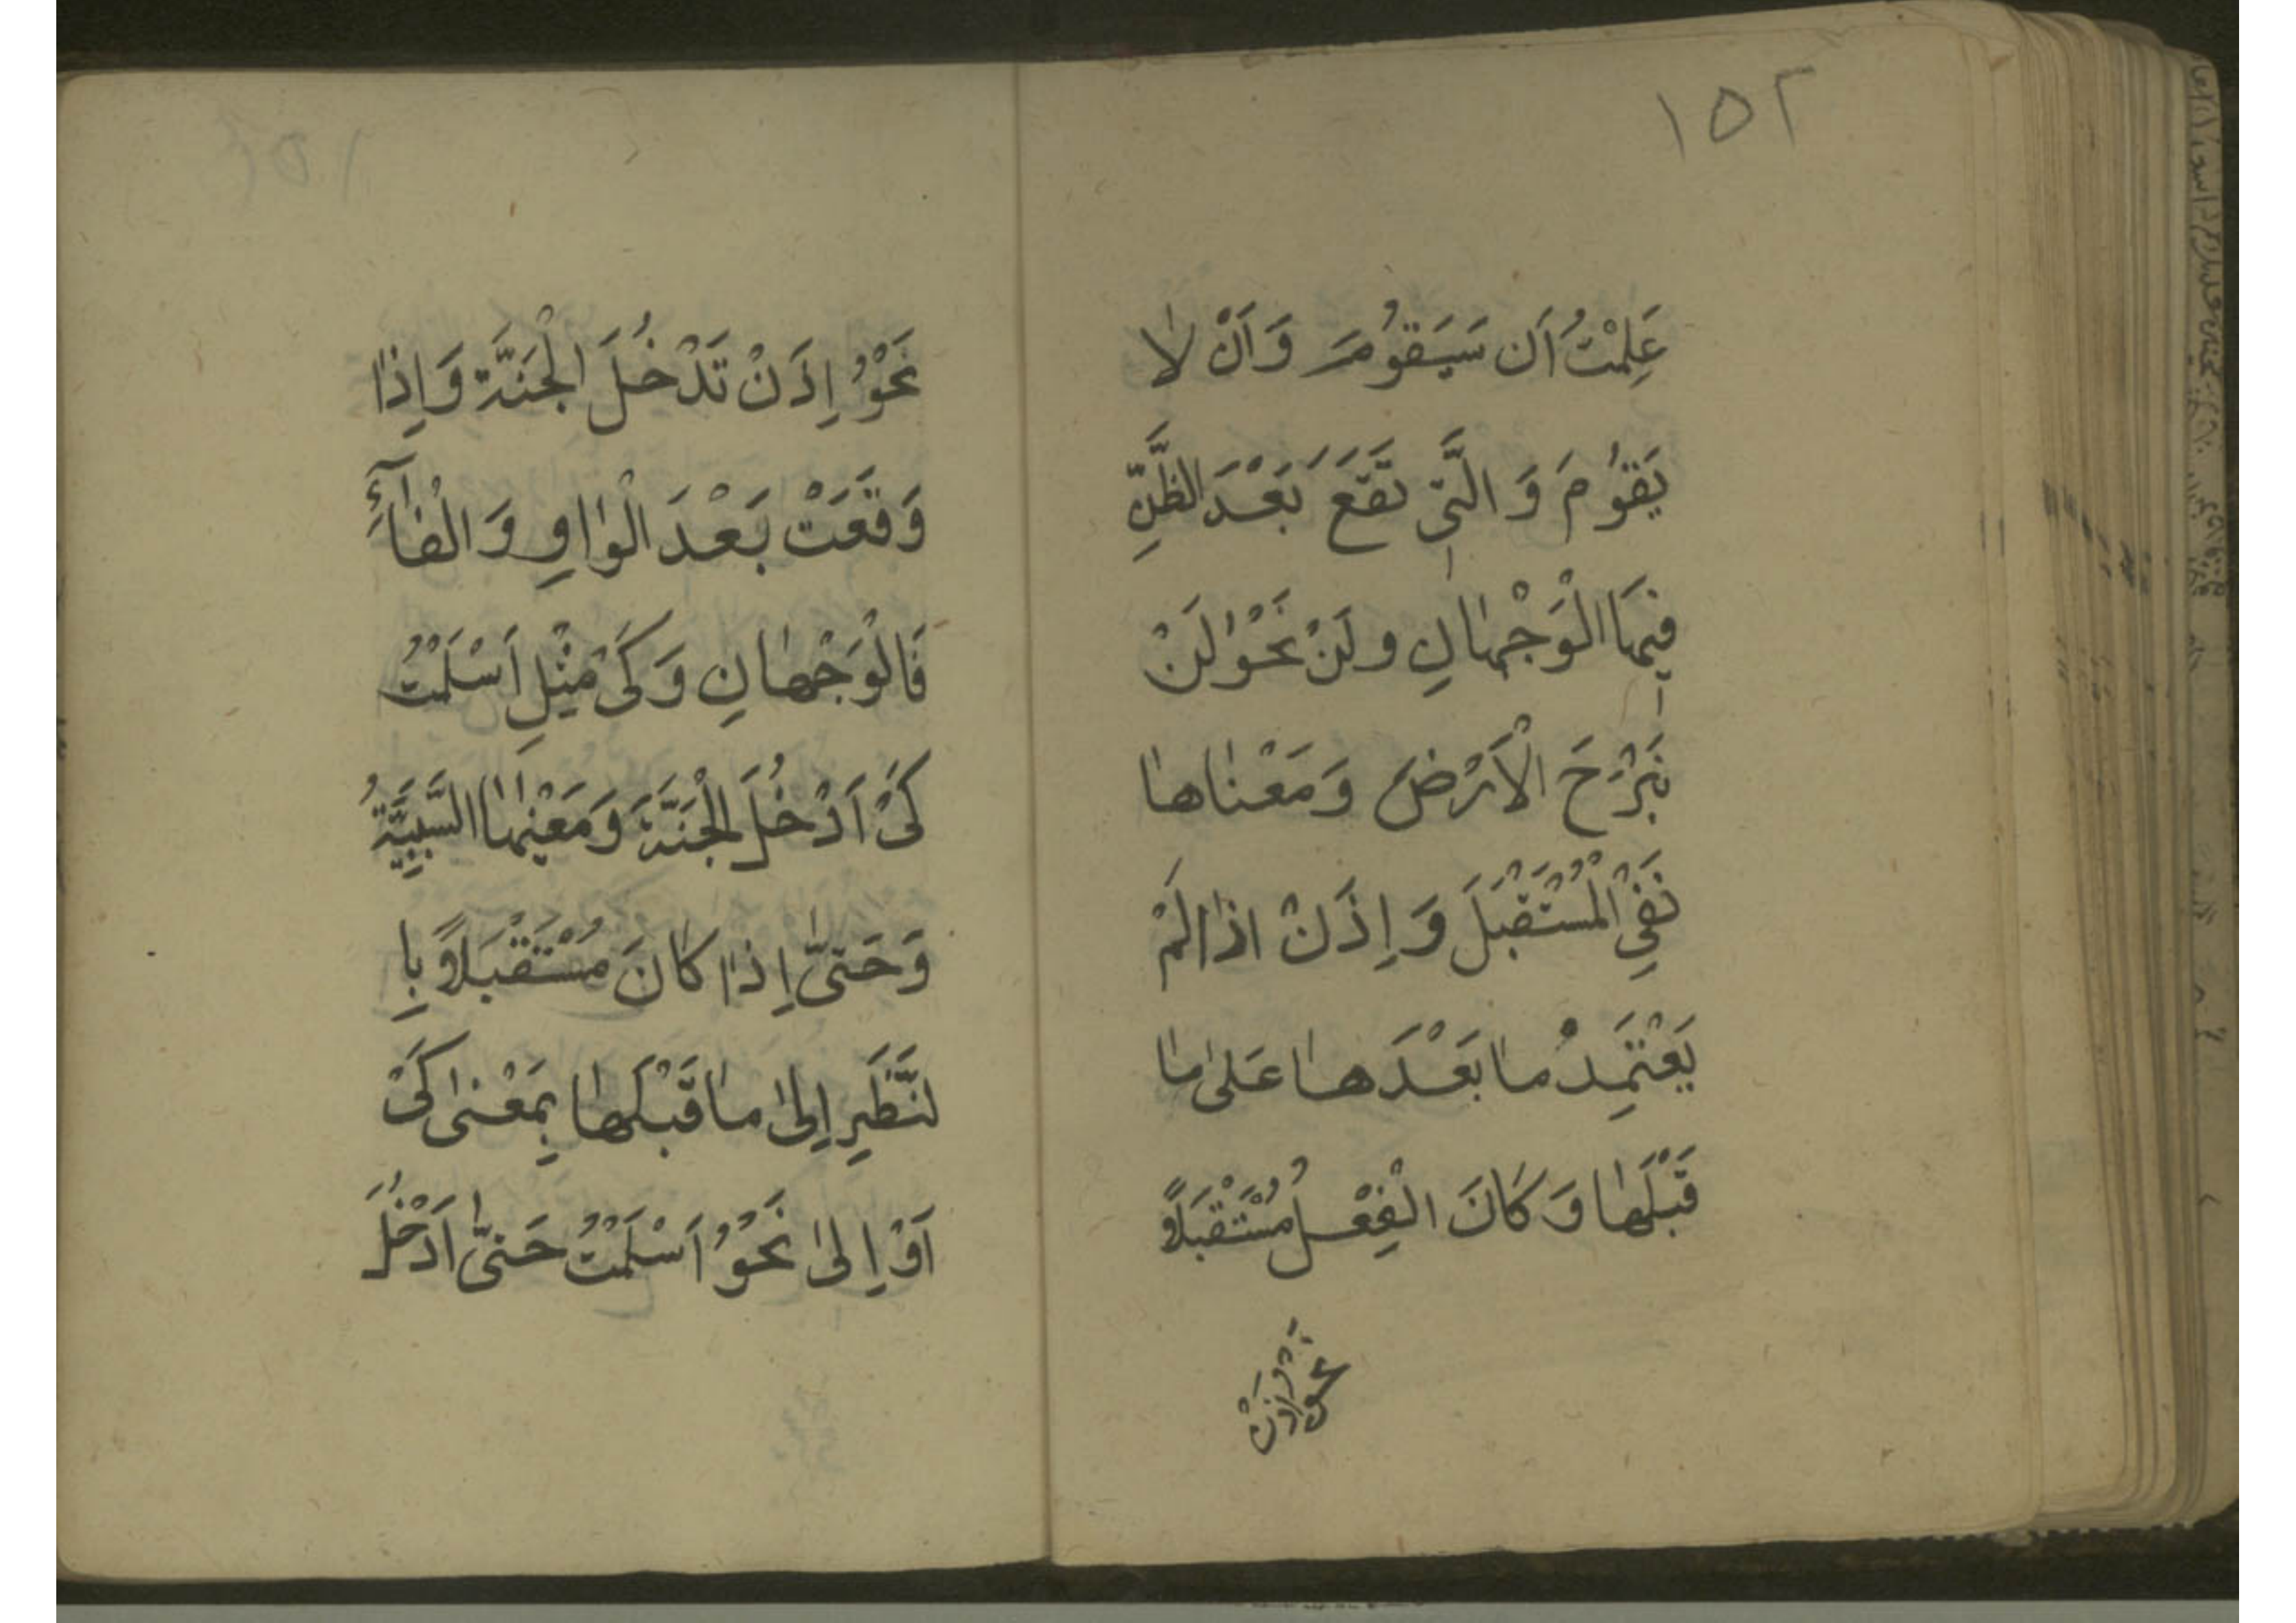 ١٥٢
عَلِمْتُ اَن سَيَقوُمَ وَاَنْ لا
يَقوُمَ وَ الَّتى تَقَع بَعْدَ الظَّنِّ
فيهَا الْوَجْهانِ و لَنْ نَحْوُ لَنْ
نَبْرَحَ الْاَرْضَ وَ مَعْناها
نَفِي الْمُسْتَقْبَلَ وَ اِذَنْ اذا لَمْ
يَعْتَمِدْ ما بَعْدَها عَلى ما
قَبْلَها وَ كانَ الْفِعْلُ مُسْتَقْبَلاً
نَحْوُ اِذَنْ
نَحْوُ اِذَنْ تَدْخُلَ الْجَنَّةَ وَ اِذا
وَقَعَتْ بَعْدَ الْواوِ وَ الْفآءِ
فَالْوَجْهانِ وَ كَىْ مِثْلِ اَسْلَمْتُ
كَىْ اَدْخُلَ الْجَنَّةَ وَ مَعْنيهَا السَّبَبِيَّةُ
وَ حَتىّٰ اِذا كانَ مُسْتَقْبَلاً بِا
لنَّظَرِ اِلىٰ ما قَبْلَها بِمَعْنى كَىْ
اَوْ اِلىٰ نَحْوُ اَسْلَمْتُ حَتىّٰ اَدْخُلَ